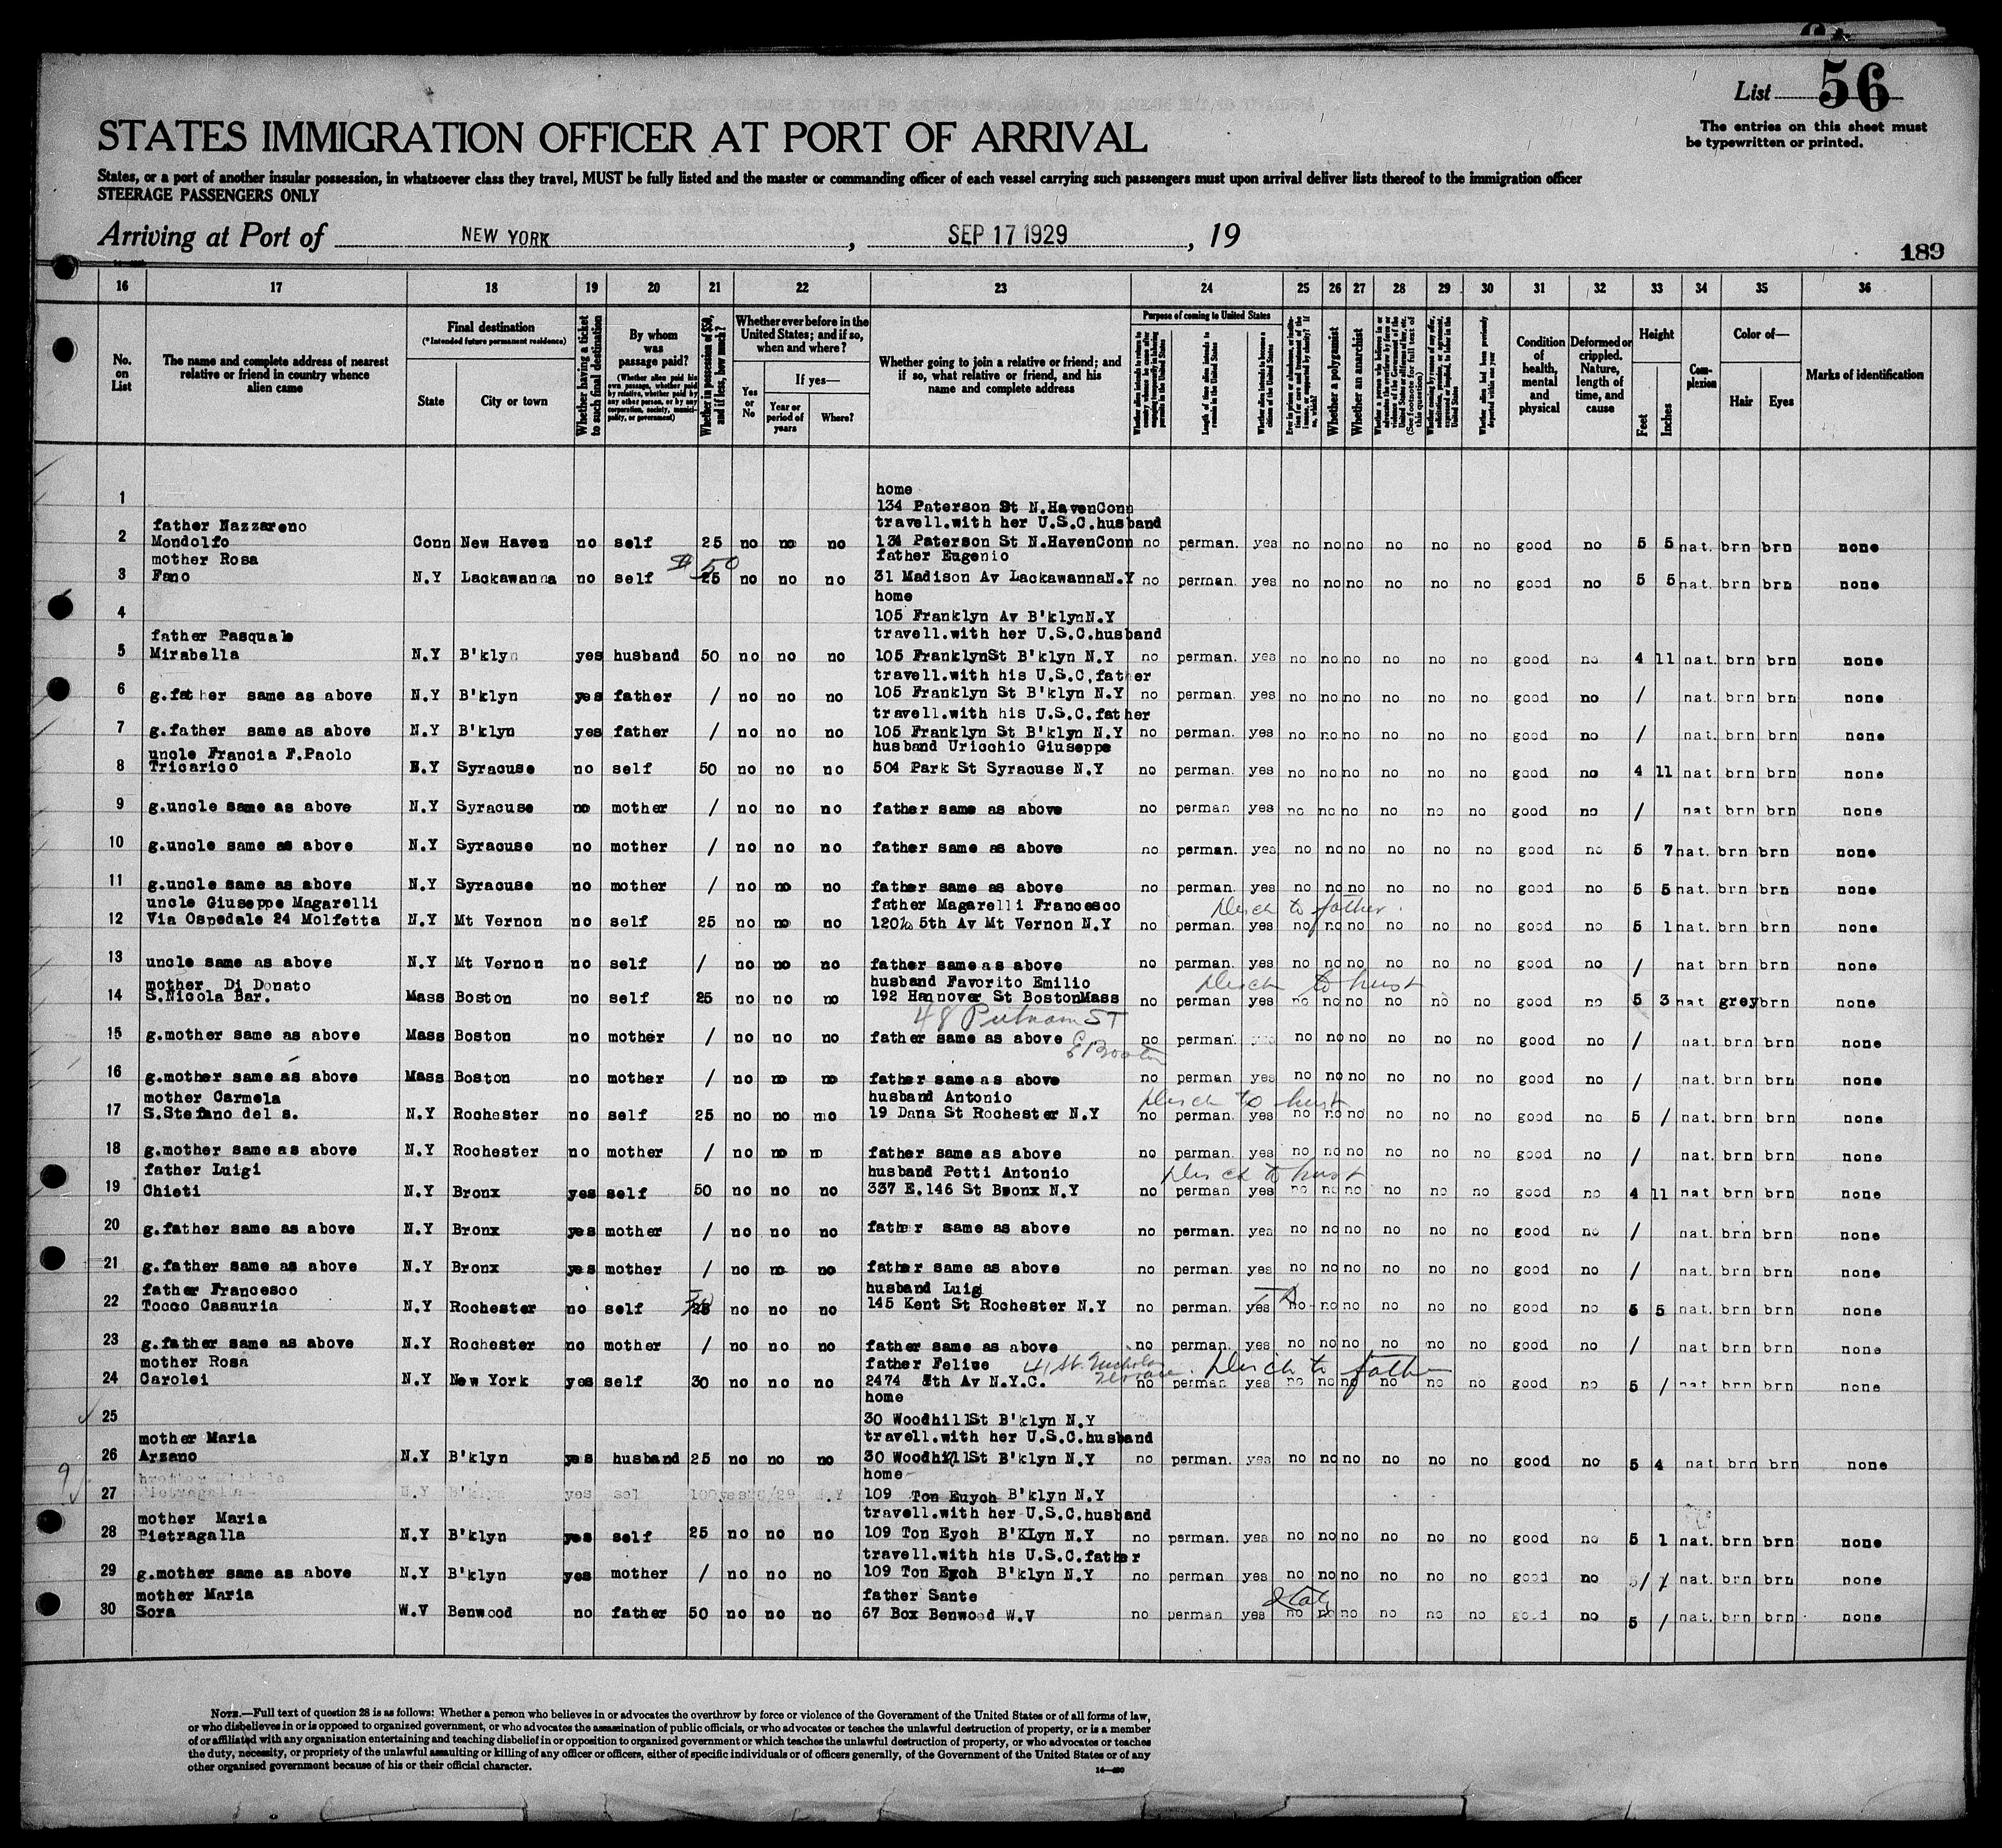 List 56
The entries on this sheet must
be typewritten or printed.
STATES IMMIGRATION OFFICER AT PORT OF ARRIVAL
States, or a port of another insular possession, in whatsoever class they travel, MUST be fully listed and the master or commanding officer of each vessel carrying such passengers must upon arrival deliver lists thereof to the immigration officer
STEERAGE PASSENGERS ONLY
Arriving at Port of NEW YORK, SEP 17 1929, 19
189
16 17 18 19 20 21 22 23 24 25 26 27 28 29 30 31 32 33 34 35 36
No. on List
The name and complete address of nearest relative or friend in country whence alien came
Final destination
(*Intended future permanent residence)
State
City or town
Whether having a ticket to such final destination
By whom was passage paid?
(Whether alien paid his own passage, whether paid by relative, whether paid by any other person, or by any corporation, society, municipality, or government)
Whether in possession of $50, and if less, how much?
Whether ever before in the United States; and if so, when and where?
Yes or No
If yes—
Year or period of years
Where?
Whether going to join a relative or friend; and if so, what relative or friend, and his name and complete address
Purpose of coming to United States
Length of time alien intends to remain in the United States
Whether alien intends to become a citizen of the United States
Whether a polygamist
Whether an anarchist
Condition of health, mental and physical
Deformed or crippled. Nature, length of time, and cause
Height
Feet
Inches
Complexion
Color of—
Hair
Eyes
Marks of identification
home
1 134 Paterson St N.HavenConn
father Nazzareno travell.with her U.S.C.husband
2 Mondolfo Conn New Haven no self 25 no no no 134 Paterson St N.HavenConn no perman. yes no no no no no no good no 5 5 nat. brn brn none
mother Rosa $50 father Eugenio
3 Fano N.Y Lackawanna no self 25 no no no 31 Madison Av LackawannaN.Y no perman. yes no no no no no no good no 5 5 nat. brn brn none
home
4 105 Franklyn Av B'klynN.Y
father Pasquale travell.with her U.S.C.husband
5 Mirabella N.Y B'klyn yes husband 50 no no no 105 FranklynSt B'klyn N.Y no perman. yes no no no no no no good no 4 11 nat. brn brn none
travell.with his U.S.C.father
6 g.father same as above N.Y B'klyn yes father / no no no 105 Franklyn St B'klyn N.Y no perman. yes no no no no no no good no / nat. brn brn none
travell.with his U.S.C.father
7 g.father same as above N.Y B'klyn yes father / no no no 105 Franklyn St B'klyn N.Y no perman. yes no no no no no no good no / nat. brn brn none
uncle Francia F.Paolo husband Uricchio Giuseppe
8 Tricarico N.Y Syracuse no self 50 no no no 504 Park St Syracuse N.Y no perman. yes no no no no no no good no 4 11 nat brn brn none
9 g.uncle same as above N.Y Syracuse no mother / no no no father same as above no perman yes no no no no no no good no / nat brn brn none
10 g.uncle same as above N.Y Syracuse no mother / no no no father same as above no perman. yes no no no no no no good no 5 7 nat. brn brn none
11 g.uncle same as above N.Y Syracuse no mother / no no no father same as above no perman. yes no no no no no no good no 5 5 nat. brn brn none
uncle Giuseppe Magarelli father Magarelli Francesco Disch to father.
12 Via Ospedale 24 Molfetta N.Y Mt Vernon no self 25 no no no 120½ 5th Av Mt Vernon N.Y no perman. yes no no no no no no good no 5 1 nat. brn brn none
13 uncle same as above N.Y Mt Vernon no self / no no no father same as above no perman. yes no no no no no no good no / nat brn brn none
mother Di Donato husband Favorito Emilio Disch to husb
14 S.Nicola Bar. Mass Boston no self 25 no no no 192 Hannover St BostonMass no perman yes no no no no no no good no 5 3 nat grey brn none
48 Putnam ST
15 g.mother same as above Mass Boston no mother / no no no father same as above no perman. no no no no no no good no / nat. brn brn none
E Boston
16 g.mother same as above Mass Boston no mother / no no no father same as above no perman yes no no no no no no good no / nat. brn brn none
mother Carmela husband Antonio Disch to husb
17 S.Stefano del s. N.Y Rochester no self 25 no no no 19 Dana St Rochester N.Y no perman. yes no no no no no no good no 5 / nat. brn brn none
18 g.mother same as above N.Y Rochester no mother / no no father same as above no perman. yes no no no no no no good no / nat. brn brn none
father Luigi husband Petti Antonio Disch to husb
19 Chieti N.Y Bronx yes self 50 no no no 337 E.146 St Bronx N.Y no perman yes no no no no no no good no 4 11 nat brn brn none
20 g.father same as above N.Y Bronx yes mother / no no no father same as above no perman. yes no no no no no no good no / nat. brn brn none
21 g.father same as above N.Y Bronx yes mother / no no no father same as above no perman. yes no no no no no no good no / nat. brn brn none
father Francesco husband Luigi
22 Tocco Casauria N.Y Rochester no self 25 no no no 145 Kent St Rochester N.Y no perman. yes no no no no no no good no 5 5 nat. brn brn none
23 g.father same as above N.Y Rochester no mother / no no no father same as above no perman. yes no no no no no no good no / nat brn brn none
mother Rosa father Felive 41 St. Nicholas Terrace Disch to father
24 Carolei N.Y New York yes self 30 no no no 2474 8th Av N.Y.C. no perman yes no no no no no no good no 5 / nat brn brn none
home
25 30 WoodhillSt B'klyn N.Y
mother Maria travell.with her U.S.C.husband
26 Arzano N.Y B'klyn yes husband 25 no no no 30 WoodhillSt B'klyn N.Y no perman. yes no no no no no no good no 5 4 nat brn brn none
home
27 Pietragalla N.Y B'klyn yes 100 yes N.Y 109 Ton Euych B'klyn N.Y
mother Maria travell.with her U.S.C.husband
28 Pietragalla N.Y B'klyn yes self 25 no no no 109 Ton Eych B'KLyn N.Y no perman. yes no no no no no no good no 5 1 nat. brn brn none
travell.with his U.S.C.father
29 g.mother same as above N.Y B'klyn yes mother / no no no 109 Ton Eych B'klyn N.Y no perman yes no no no no no no good no / / nat. brn brn none
mother Maria father Sante Italy
30 Sora W.V Benwood no father 50 no no no 67 Box Benwood W.V no perman yes no no no no no no good no 5 / nat. brn brn none
NOTE.—Full text of question 28 is as follows: Whether a person who believes in or advocates the overthrow by force or violence of the Government of the United States or of all forms of law,
or who disbelieves in or is opposed to organized government, or who advocates the assassination of public officials, or who advocates or teaches the unlawful destruction of property, or is a member
of or affiliated with any organization entertaining and teaching disbelief in or opposition to organized government or which teaches the unlawful destruction of property, or who advocates or teaches
the duty, necessity, or propriety of the unlawful assaulting or killing of any officer or officers, either of specific individuals or of officers generally, of the Government of the United States or of any
other organized government because of his or their official character.